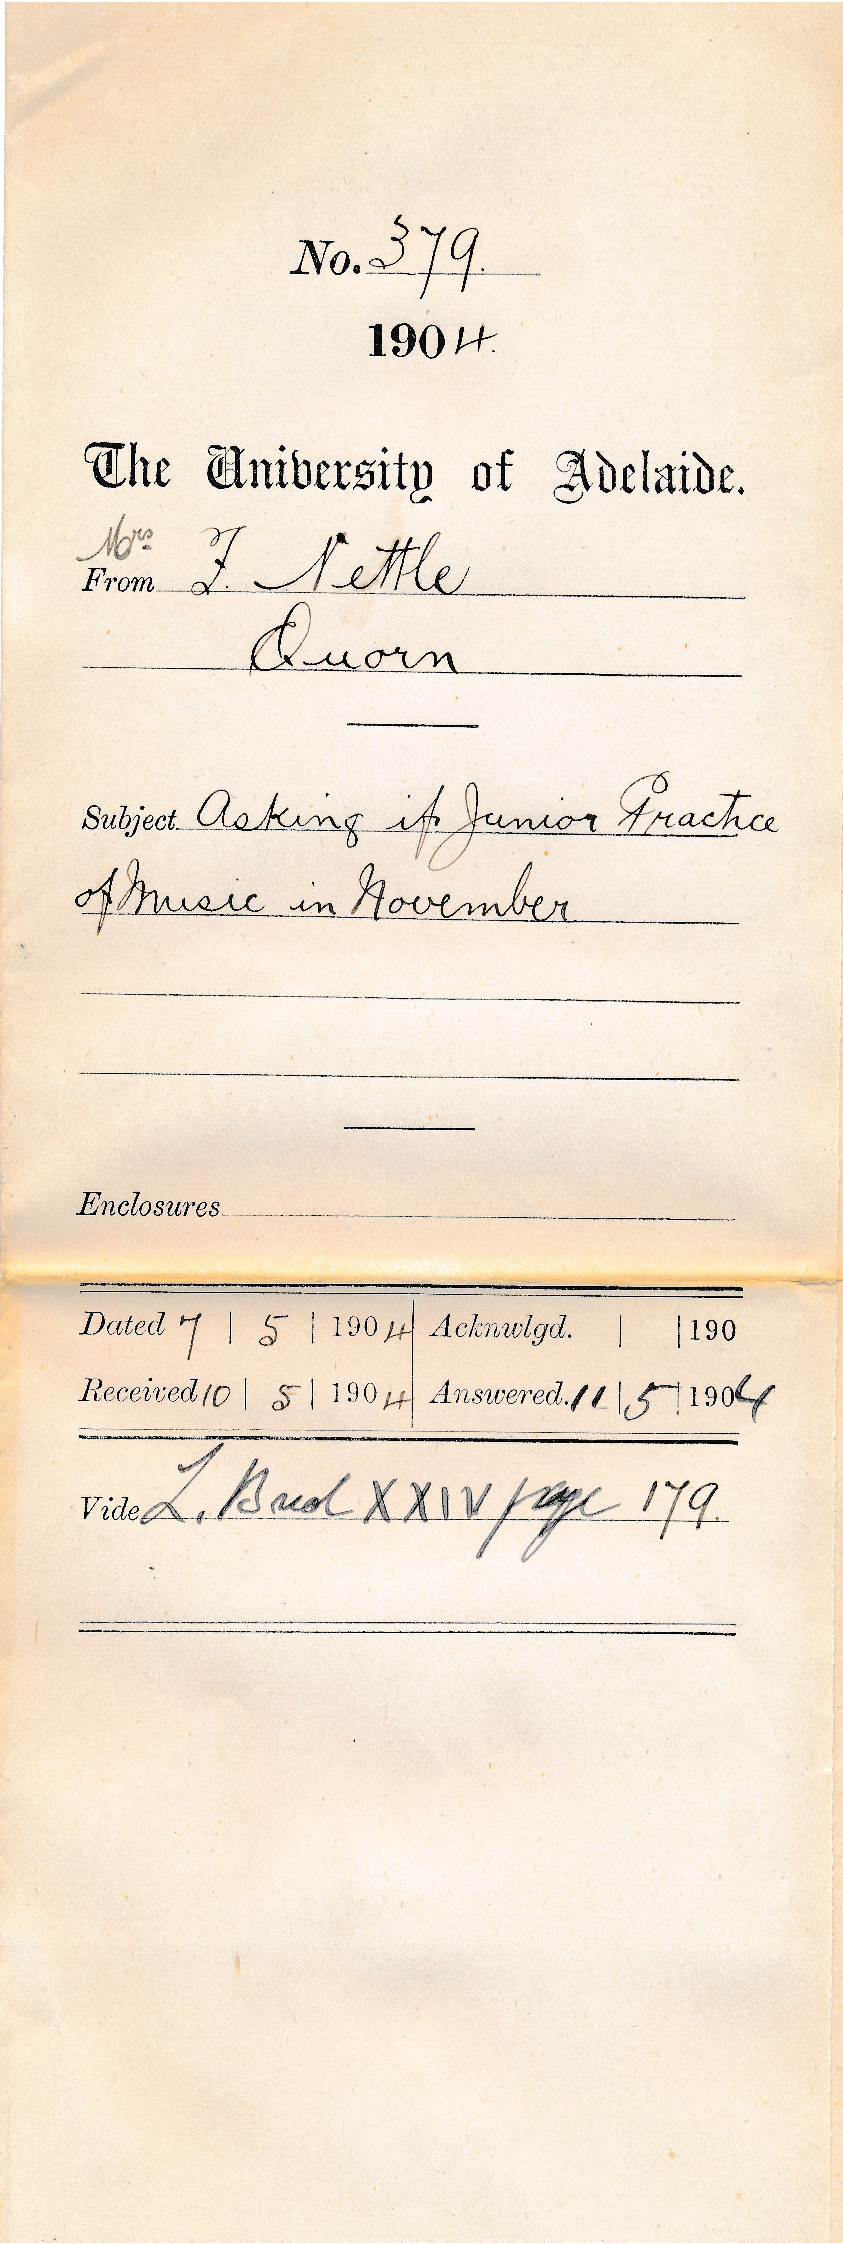 No. 379.
1904.
The University of Adelaide.
Mrs
From F. Nettle
Quorn
Subject. Asking if Junior Practice
of Music in November
Enclosures
Dated 7 | 5 | 1904 Acknwlgd. | | 190
Received 10 | 5 | 1904 Answered. 11 | 5 | 1904
Vide L. Book XXIV page 179.